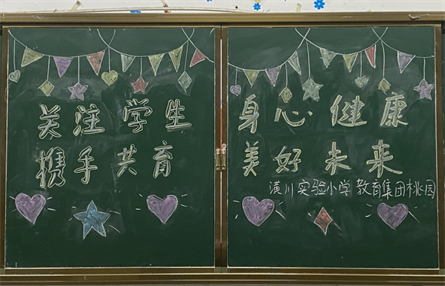 关注学生
携手共育
身心健康
美好未来
潢川实验小学教育集团桃园